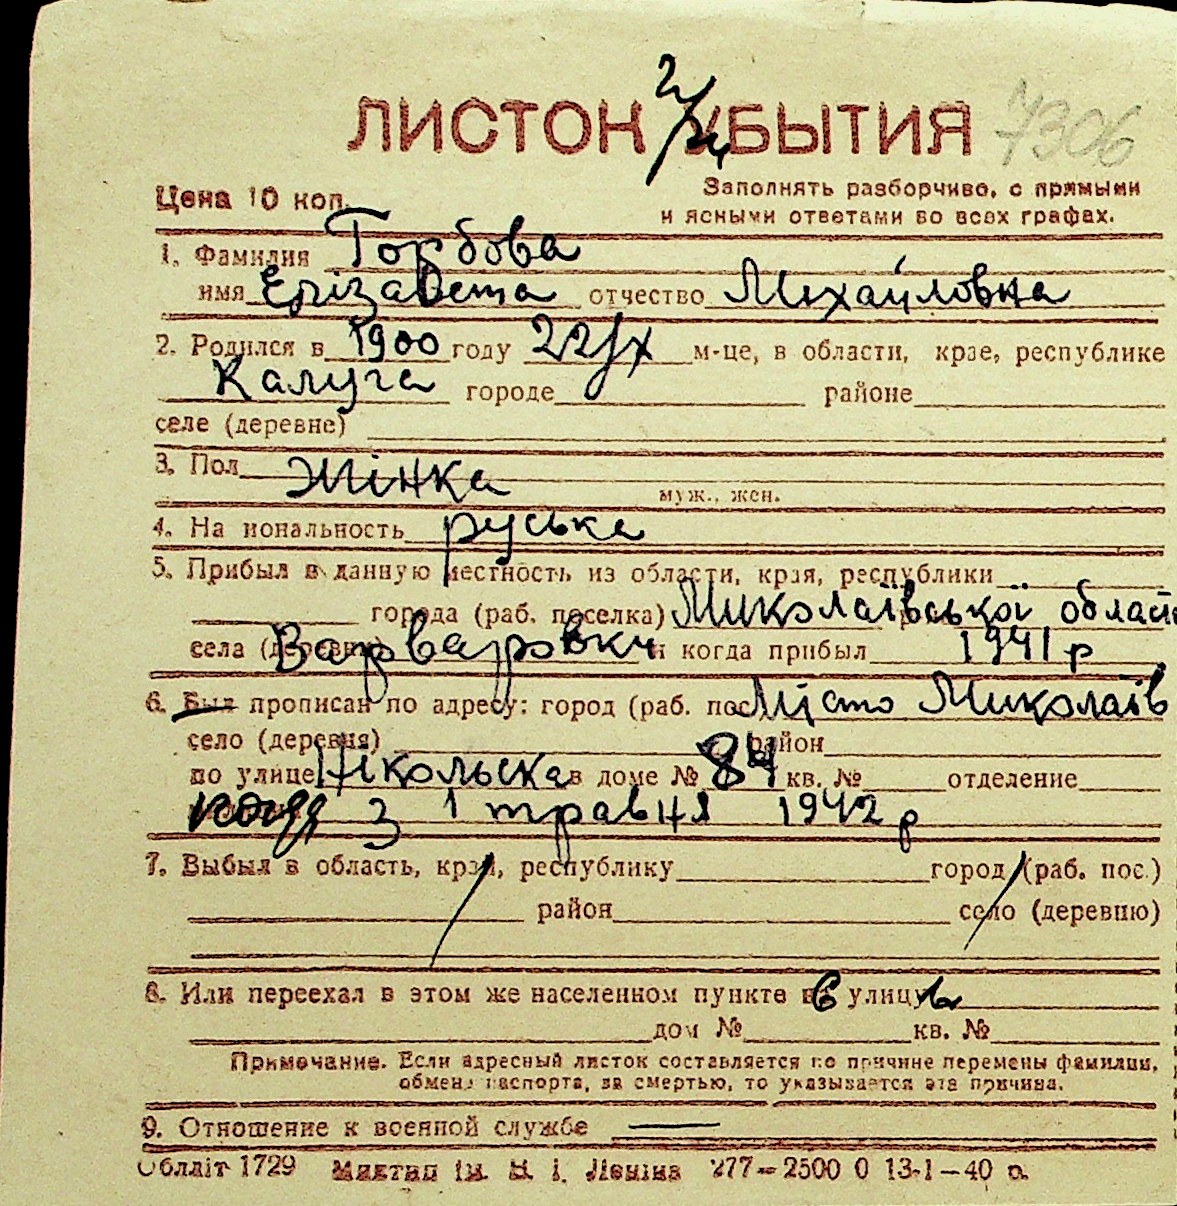 ЛИСТОК УБЫТИЯ 7306
Цена 10 коп.
Заполнять разборчиво, с прямыми
и ясными ответами во всех графах.
1. Фамилия Горбова
имя Єлізавета отчество Михайловна
2. Родился в 1900 году 22/IX м-це, в области, крае, республике
Калуга городе районе
селе (деревне)
3. Пол Жінка
муж., жен.
4. Национальность руська
5. Прибыл в данную местность из области, края, республики
города (раб. поселка) Миколаївської област
села (деревни) Варваровки и когда прибыл 1941 р
6. Был прописан по адресу: город (раб. пос.) Місто Миколаїв
село (деревня) район
по улице Нікольска в доме № 84 кв. № отделение
когда з 1 травня 1942 р
7. Выбыл в область, край, республику город (раб. пос.)
район село (деревню)
8. Или переехал в этом же населенном пункте в улицу
дом № кв. №
Примечание. Если адресный листок составляется по причине перемены фамилии,
обмена паспорта, за смертью, то указывается эта причина.
9. Отношение к военной службе —
Облліт 1729 ім. В. І. Леніна 277—2500 0 13-1—40 р.